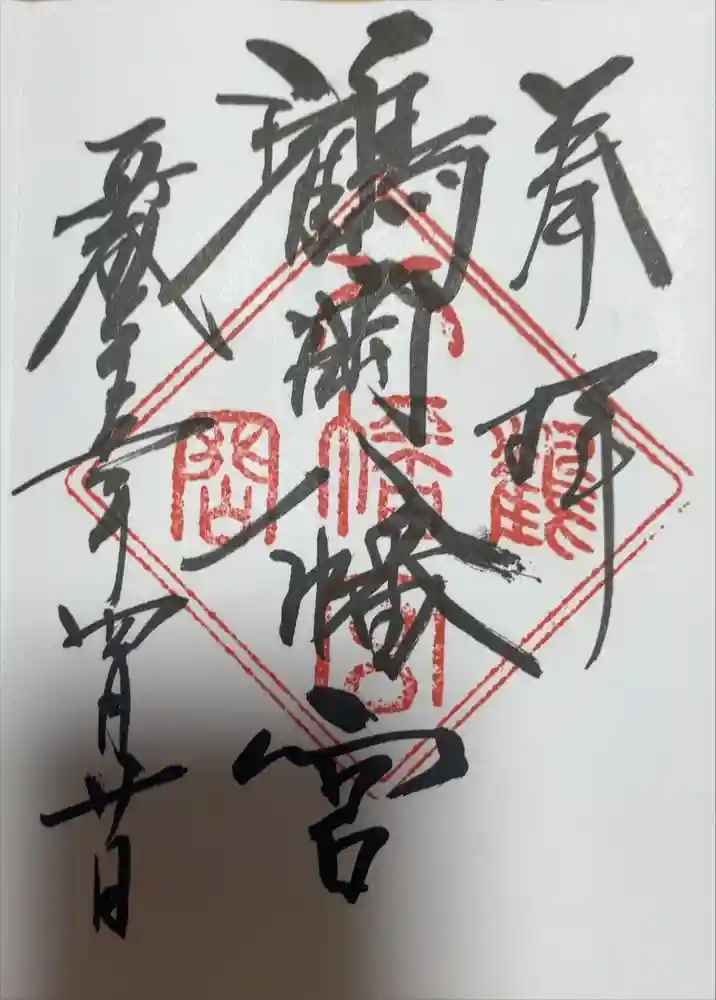 奉拝
鶴岡八幡宮
五年四月廿日
鶴岡八幡宮